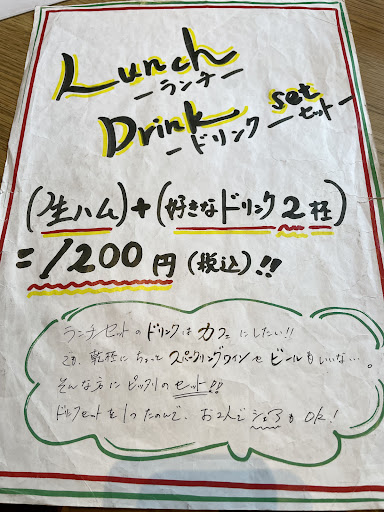 Lunch
ーランチー
Drink set
ードリンクーセットー
(生ハム)+(好きなドリンク2杯)
=1200円(税込)!!
ランチセットのドリンクはカフェにしたい!!
でも、乾杯にちょっとスパークリングワインやビールもいいな…。
そんな方にピッタリのセット!!
ドリンクセットを1つたのんで、お2人でシェアもOK!